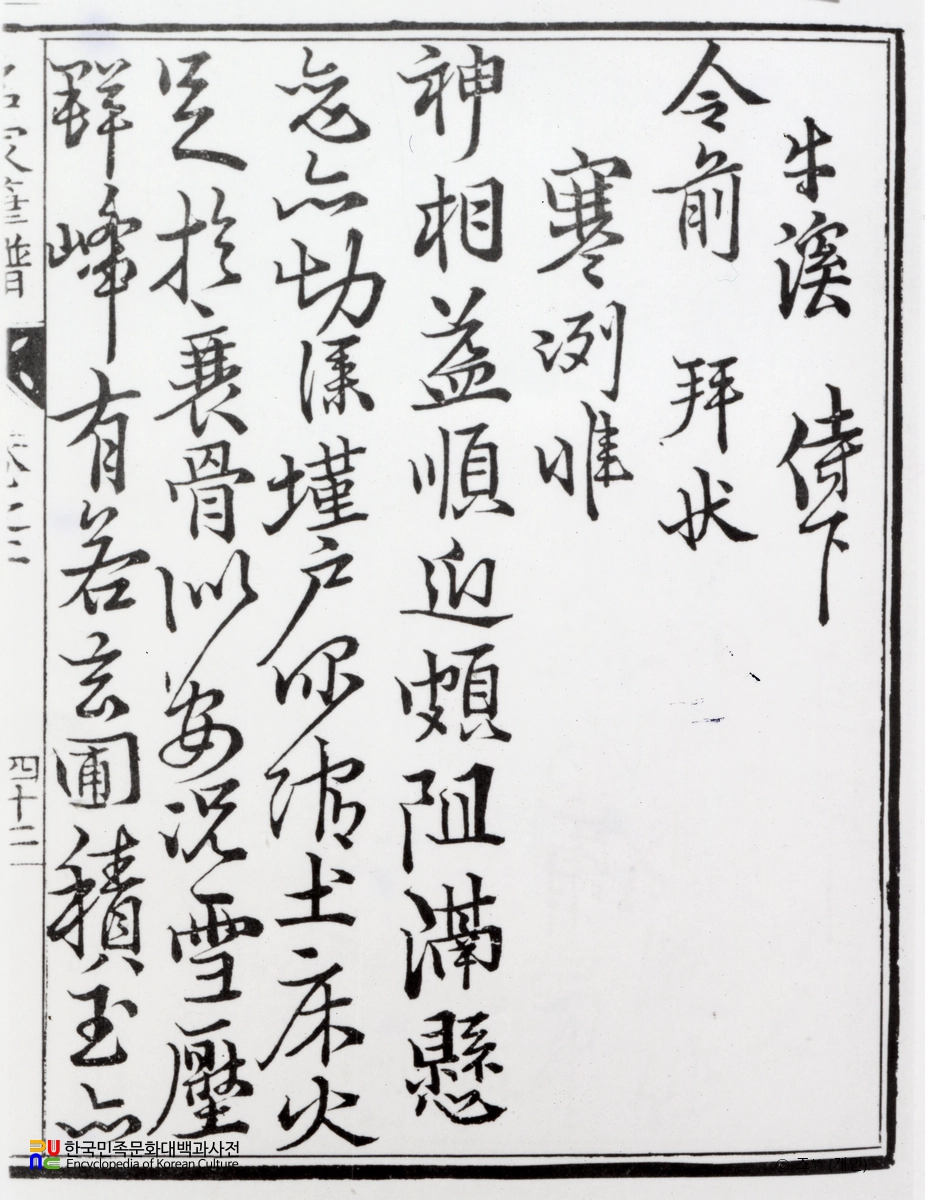 牛溪 侍下
令前 拜狀
寒冽惟
神相益順迎頗阻滿懸
念亦切深墐戶所 土床火
足於衰骨似安況雪壓
群峰有若玄圃積玉亦
名家筆譜 卷之二 四十二
한국민족문화대백과사전
Encyclopedia of Korean Culture